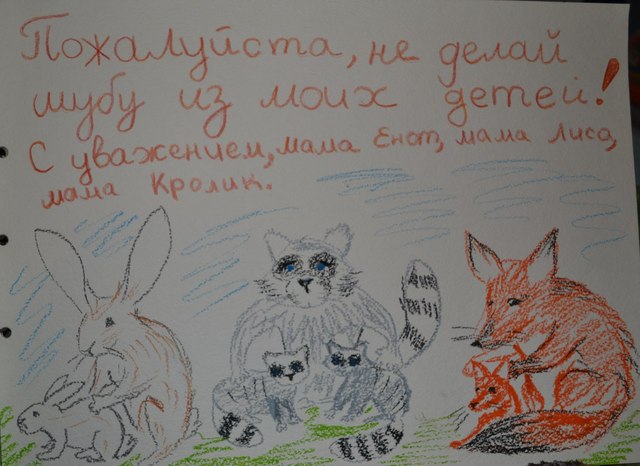 Пожалуйста, не делай
шубу из моих детей!
С уважением, мама Енот, мама Лиса,
мама Кролик.